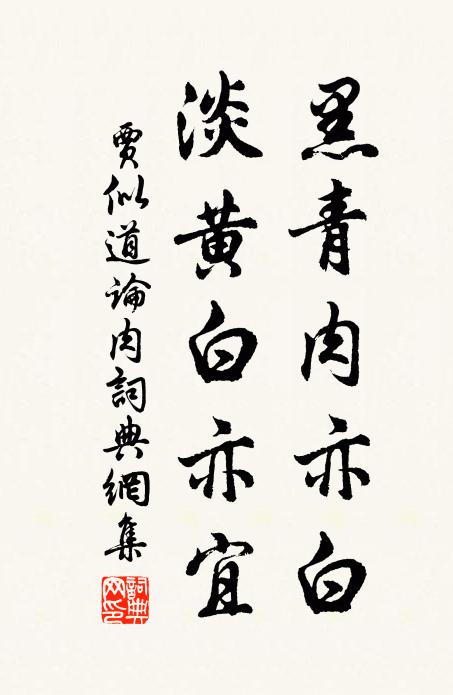 黑青肉亦白
淡黄白亦宜
賈似道論肉詞典網集
詞典網印